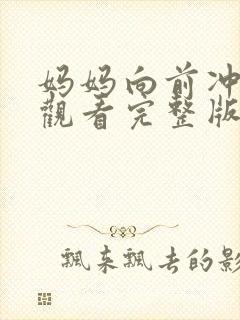 妈妈向前冲
觀看完整版
飘来飘去的影